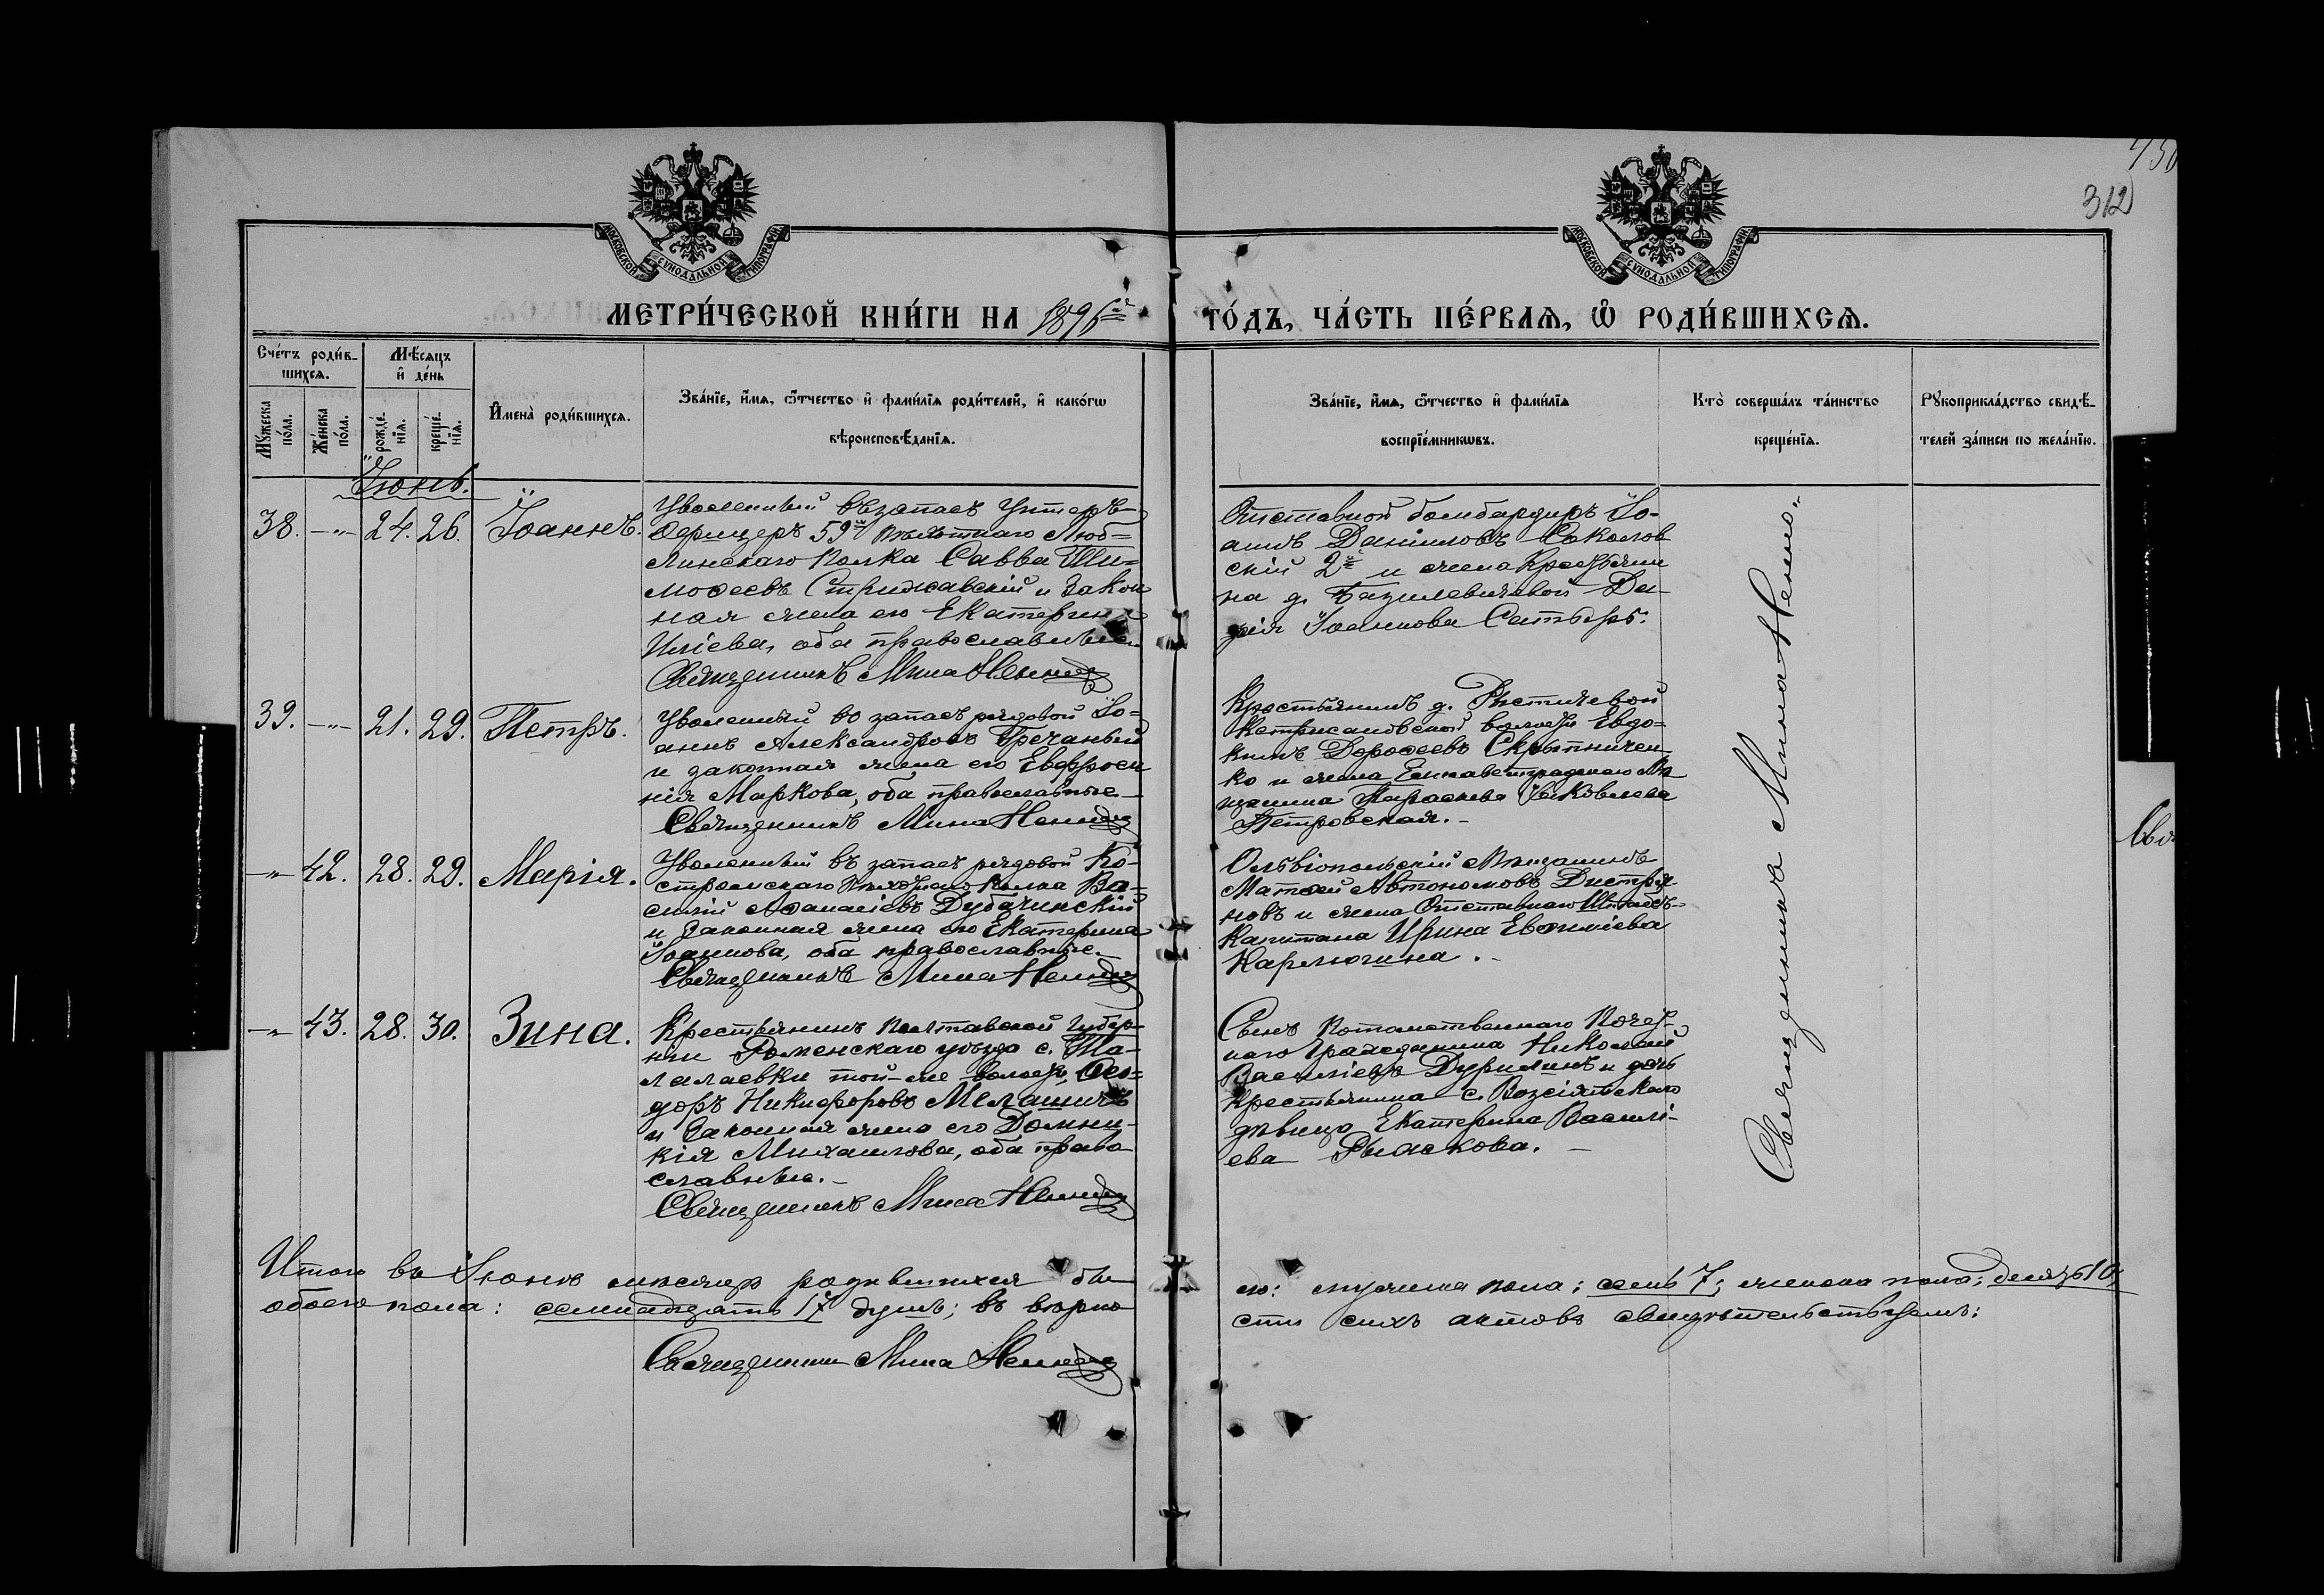 450
312
МОСКОВСКОЙ СУНОДАЛЬНОЙ ТИПОГРАФІИ
МОСКОВСКОЙ СУНОДАЛЬНОЙ ТИПОГРАФІИ
МЕТРИ́ЧЕСКОЙ КНИ́ГИ НА 1896й
ГО́ДЪ, ЧА́СТЬ ПЕ́РВАЯ, Ѡ РОДИ́ВШИХСЯ.
Сче́тъ роди́в-
шихся.
Мѣ́сяцъ
и де́нь
Му́жеска
по́ла.
Же́нска
по́ла.
рожде́-
нія.
креще́-
нія.
Имена̀ роди́вшихся.
Зва́ніе, и́мя, ѻ́тчество и фами́лія роди́телей, и како́гѡ
вѣроисповѣ́данія.
Зва́ніе, и́мя, ѻ́тчество и фами́лія
воспріе́мниковъ.
Кто̀ соверша́лъ та́инство
креще́нія.
Рукоприкла́дство свидѣ́-
телей за́писи по жела́нію.
Іюнь.
38. -"- 24. 26. Іоаннъ.
Уволенный въ запасъ Унтеръ-
Офицеръ 59го пѣхотнаго Люб=
линскаго полка Савва Ти=
моѳеевъ Стрижавскій и закон
ная жена его Екатерина
Иліева, оба православные
Священникъ Мина
Отставной бомбардиръ Іо-
аннъ Даніиловъ Соколов
скій 2й и жена Крестьяни
на д. Базилевичевой Да-
рія Іоаннова
39. -"- 21. 29. Петръ.
Уволенный во запасъ рядовой Іо=
аннъ Александровъ Гречаный
и законная жена его Евфроси
нія Маркова, оба православные
Священникъ Мина
Крестьянинъ д.
волости Евдо=
кимъ Дороѳеевъ Скрыпничен
ко и жена Елисаветградскаго Мѣ
щанина Параскева Яковлева
Петровская.-
-"- 42. 28. 29. Марія.
Уволенный въ запасъ рядовой Ко-
стромскаго Пѣхотнаго полка Ва-
силій Аѳанасіевъ Дубачинскій
и законная жена его Екатерина
Іоаннова, оба православные.
Священникъ Мина
Ольвіопольскій Мѣщанинъ
Матѳей Автономовъ
новъ и жена Отставнаго Штабсъ-
Капитана Ирина Евѳиміева
Карлюгина.-
-"- 43. 28. 30. Зина.
Крестьянинъ Полтавской губер-
ніи Роменскаго уѣзда с. Та-
лалаевки той-же волости, Ѳео=
доръ Никифоровъ Мелашичъ
и Законная жена его Домни-
кія Михаилова, оба право
славные.-
Священникъ Мина
Сынъ Потомственнаго Почет-
наго Гражданина Николай
Василіевъ Дурилинъ и дочь
Крестьянина с. Возсіятскаго
дѣвица Екатерина Василі-
ева Рыжкова.-
Священникъ Мина
Итого въ Іюнѣ мѣсяцѣ родившихся бы
ло: мужеска пола: семь 7; женска пола: десять 10;
обоего пола: семнадцать 17 душъ; въ вѣрно
сти сихъ актовъ свидѣтельствуемъ:
Священникъ Мина